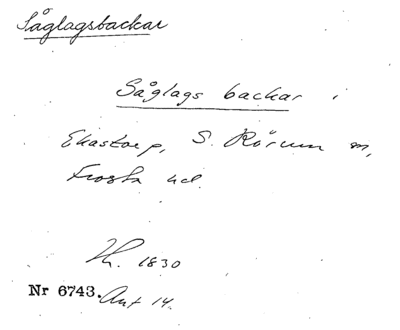 Såglagsbackar
Såglags backar i
Ekastorp, S. Rörum sn,
Frosta hd.
1830
Nr 6743. Ant 14.